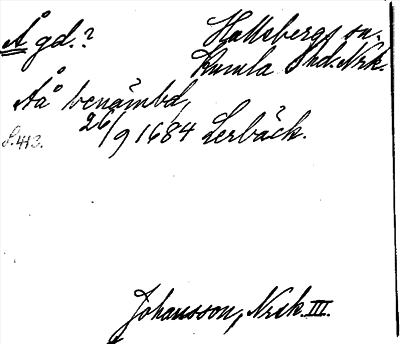 Å gd.?
Hallsbergs sn.
Kumla hd. Nrk.
Aå benämbd,
26/9 1684 Lerbäck.
s. 413.
Johansson, Nrk. III.